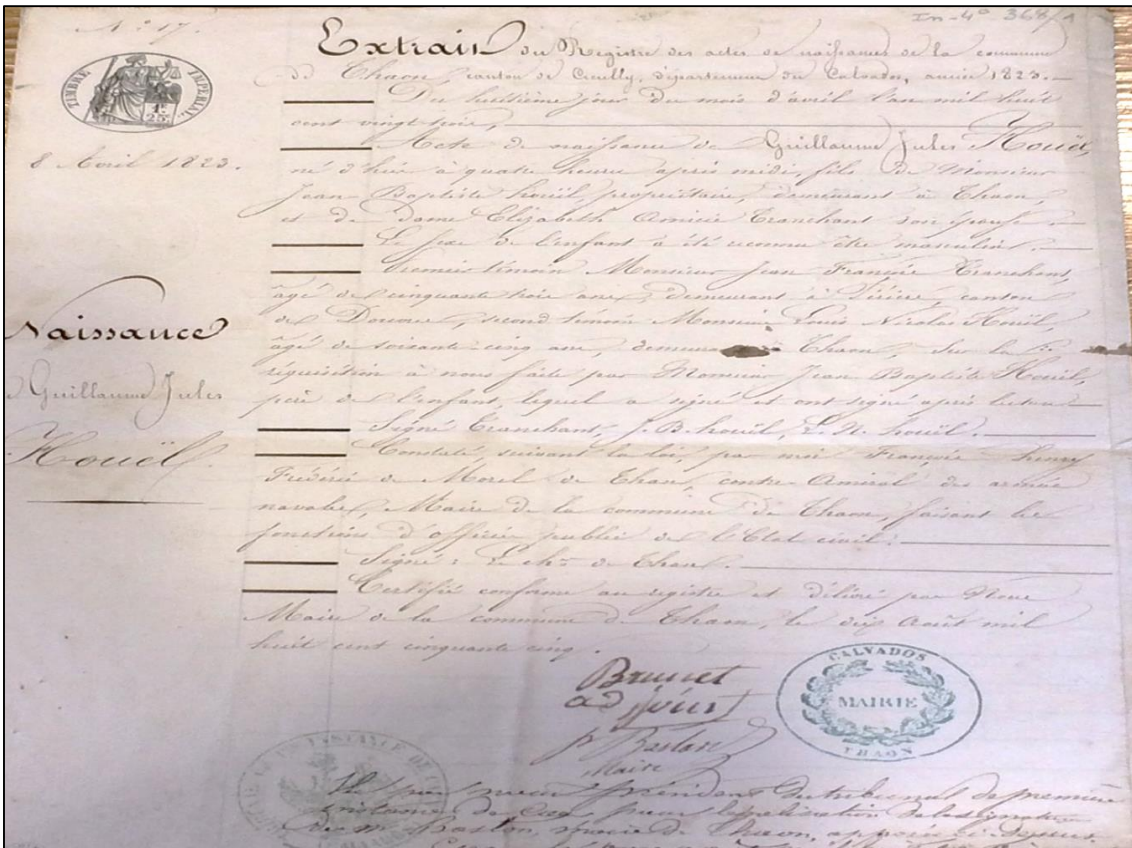 N° 17.
In-4° 368/1
TIMBRE IMPERIAL
1F 25c
8 Avril 1823.
Naissance
Guillaume Jules
Houël.
Extrait du Registre des actes de naissances de la commune
de Thaon, canton de Creully, département du Calvados, année 1823.
Du huitième jour du mois d'avril l'an mil huit
cent vingt trois,
Acte de naissance de Guillaume Jules Houël,
né d'hier à quatre heures après midi, fils de Monsieur
Jean Baptiste Houël, propriétaire, demeurant à Thaon,
et de dame Elizabeth Aimée Tranchant son épouse.
Le sexe de l'enfant a été reconnu être masculin.
Premier témoin Monsieur Jean François Tranchant,
âgé de cinquante trois ans, demeurant à canton
de second témoin Monsieur Louis Nicolas Houël,
âgé de soixante cinq ans, Thaon, Sur la
réquisition à nous faite par Monsieur Jean Baptiste Houël,
père de l'enfant, lequel a signé et ont signé après lecture
Signé Tranchant, J. B. houël, L. N. houël.
Constaté suivant la loi, par moi François henry
Frédéric de Morel de Than, contre Amiral des armées
navales, Maire de la commune de Thaon, faisant les
fonctions d'officier public de l'Etat civil.
Signé : Le ch.er de Than.
Certifié conforme au registre et délivré par Nous
Maire de la commune de Thaon, le dix Août mil
huit cent cinquante cinq.
Brunet
adjoint
pr Baston
Maire
CALVADOS
MAIRIE
THAON
Vu par nous président du tribunal de première
instance de Caen, pour légalisation de la signature
de Mr Baston, maire de Thaon, apposée ci-dessus.